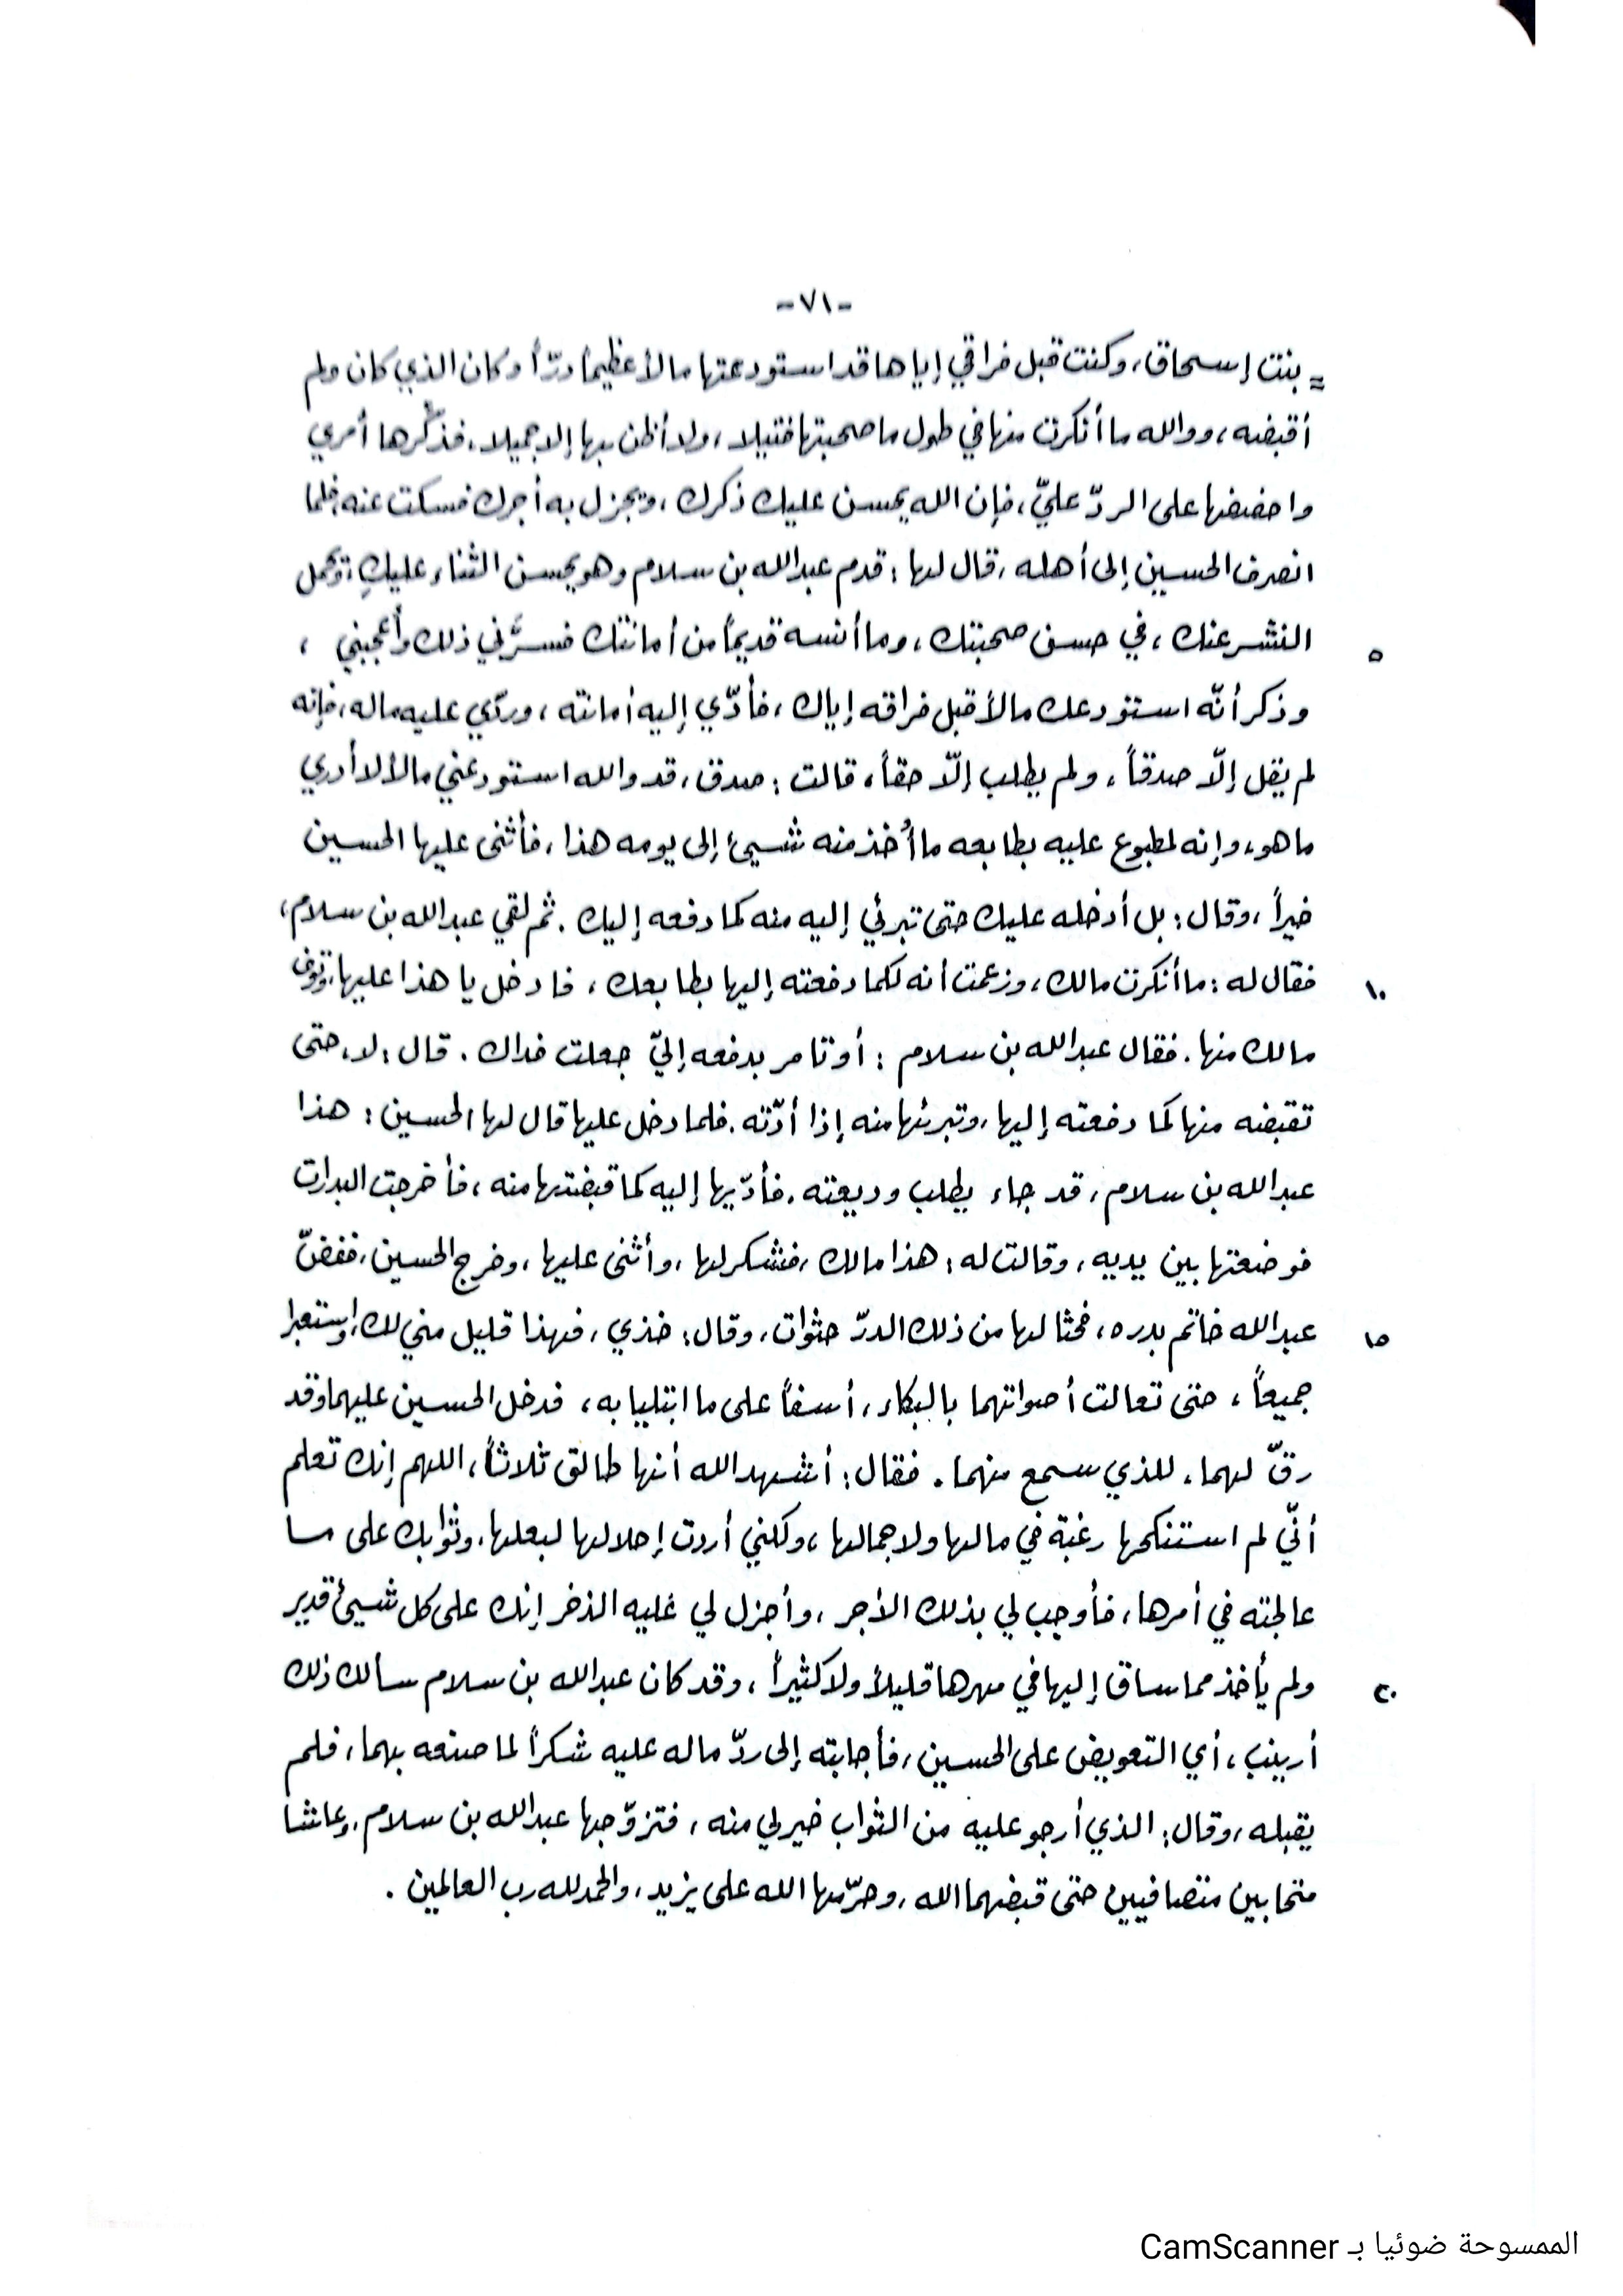 -٧١-
= بنت إسحاق، وكنت قبل فراقي إياها قد استودعتها مالاً عظيماً درّاً وكان الذي كان ولم
أقبضه، ووالله ما أنكرت منها في طول ما صحبتها فتيلا، ولا أظن بها إلا جميلا، فذكّرها أمري
واحضضها على الردّ عليّ، فإن الله يحسن عليك ذكرك، ويجزل به أجرك فسكت عنه، فلما
انصرف الحسين إلى أهله، قال لها: قدم عبدالله بن سلام وهو يحسن الثناء عليكِ، ويحمل
النشر عنك، في حسن صحبتك، وما أنسه قديماً من أمانتك فسرَّني ذلك وأعجبني،
٥
وذكر أنّه استودعك مالاً قبل فراقه إياك، فأدّي إليه أمانته، وردّي عليه ماله، فإنه
لم يقل إلّا صدقاً، ولم يطلب إلّا حقاً، قالت: صدق، قد والله استودعني مالاً لا أدري
ما هو، وإنه لمطبوع عليه بطابعه ما أُخذ منه شيئ إلى يومه هذا، فأثنى عليها الحسين
خيراً، وقال: بل أدخله عليك حتى تبرئي إليه منه كما دفعه إليك. ثم لقي عبدالله بن سلام،
فقال له: ما أنكرت مالك، وزعمت أنه لكما دفعته إليها بطابعك، فادخل يا هذا عليها، وتوف
١٠
مالك منها. فقال عبدالله بن سلام: أو تأمر بدفعه إليّ جعلت فداك. قال: لا، حتى
تقبضه منها كما دفعته إليها، وتبرئها منه إذا أدّته. فلما دخل عليها قال لها الحسين: هذا
عبدالله بن سلام، قد جاء يطلب وديعته. فأدّيها إليه كما قبضتها منه، فأخرجت البدرات
فوضعتها بين يديه، وقالت له: هذا مالك، فشكر لها، وأثنى عليها، وخرج الحسين، ففضّ
عبدالله خاتم بدره، فحثا لها من ذلك الدرّ حثوات، وقال: خذي، فهذا قليل مني لك، واستعبرا
١٥
جميعاً، حتى تعالت أصواتهما بالبكاء، أسفاً على ما ابتليا به، فدخل الحسين عليهما وقد
رقّ لهما، للذي سمع منهما. فقال: أشهد الله أنها طالق ثلاثاً، اللهم إنك تعلم
أنّي لم استنكحها رغبة في مالها ولا جمالها، ولكني أردت إحلالها لبعلها، وثوابك على ما
عالجته في أمرها، فأوجب لي بذلك الأجر، وأجزل لي عليه الذخر إنك على كل شيئ قدير
ولم يأخذ مما ساق إليها في مهرها قليلاً ولا كثيراً، وقد كان عبدالله بن سلام سالك ذلك
٢٠
أرينب، أي التعويض على الحسين، فأجابته إلى ردّ ماله عليه شكراً لما صنعه بهما، فلم
يقبله، وقال: الذي أرجو عليه من الثواب خير لي منه، فتزوّجها عبدالله بن سلام، وعاشا
متحابين متصافيين حتى قبضهما الله، وحرّمها الله على يزيد، والحمد لله رب العالمين.
الممسوحة ضوئيا بـ CamScanner